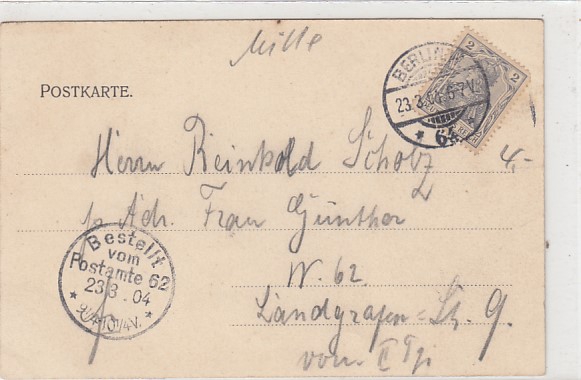 Mille
POSTKARTE.
BERLIN
23.3.04. 6-7V.
* 64
2 2
4,-
Herrn Reinhold Scholz
p. Adr. Frau Günther
W. 62.
Landgrafen-Str. 9.
vorn II
Bestellt
vom
Postamte 62
23.3.04